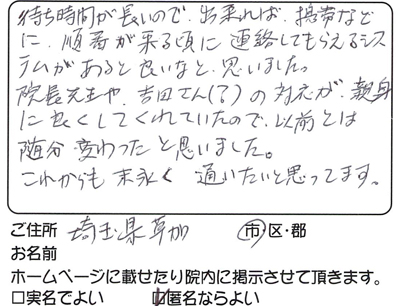 待ち時間が長いので、出来れば、携帯など
に、順番が来る頃に連絡してもらえるシス
テムがあると良いなと、思いました。
院長先生や、吉田さん(?)の対応が、親身
に良くしてくれていたので、以前とは
随分変わったと思いました。
これからも末永く通いたいと思ってます。
ご住所 埼玉県草加 市・区・郡
お名前
ホームページに載せたり院内に掲示させて頂きます。
□実名でよい □匿名ならよい